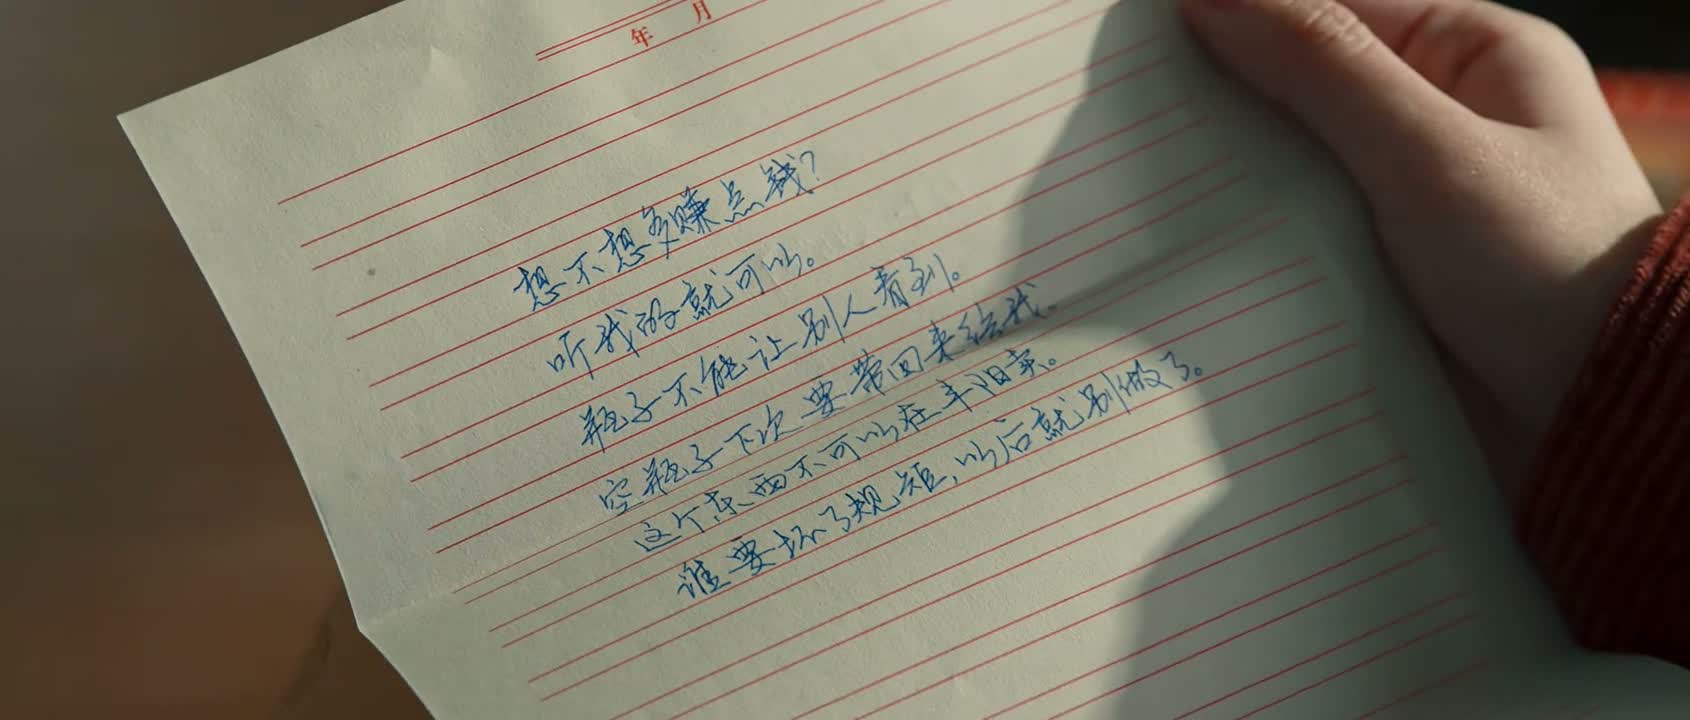 年 月
想不想多赚点钱？
听我的就可以。
瓶子不能让别人看到。
空瓶子下次要带回来给我.
这个东西不可以在丰阳卖。
谁要坏了规矩，以后就别做了。